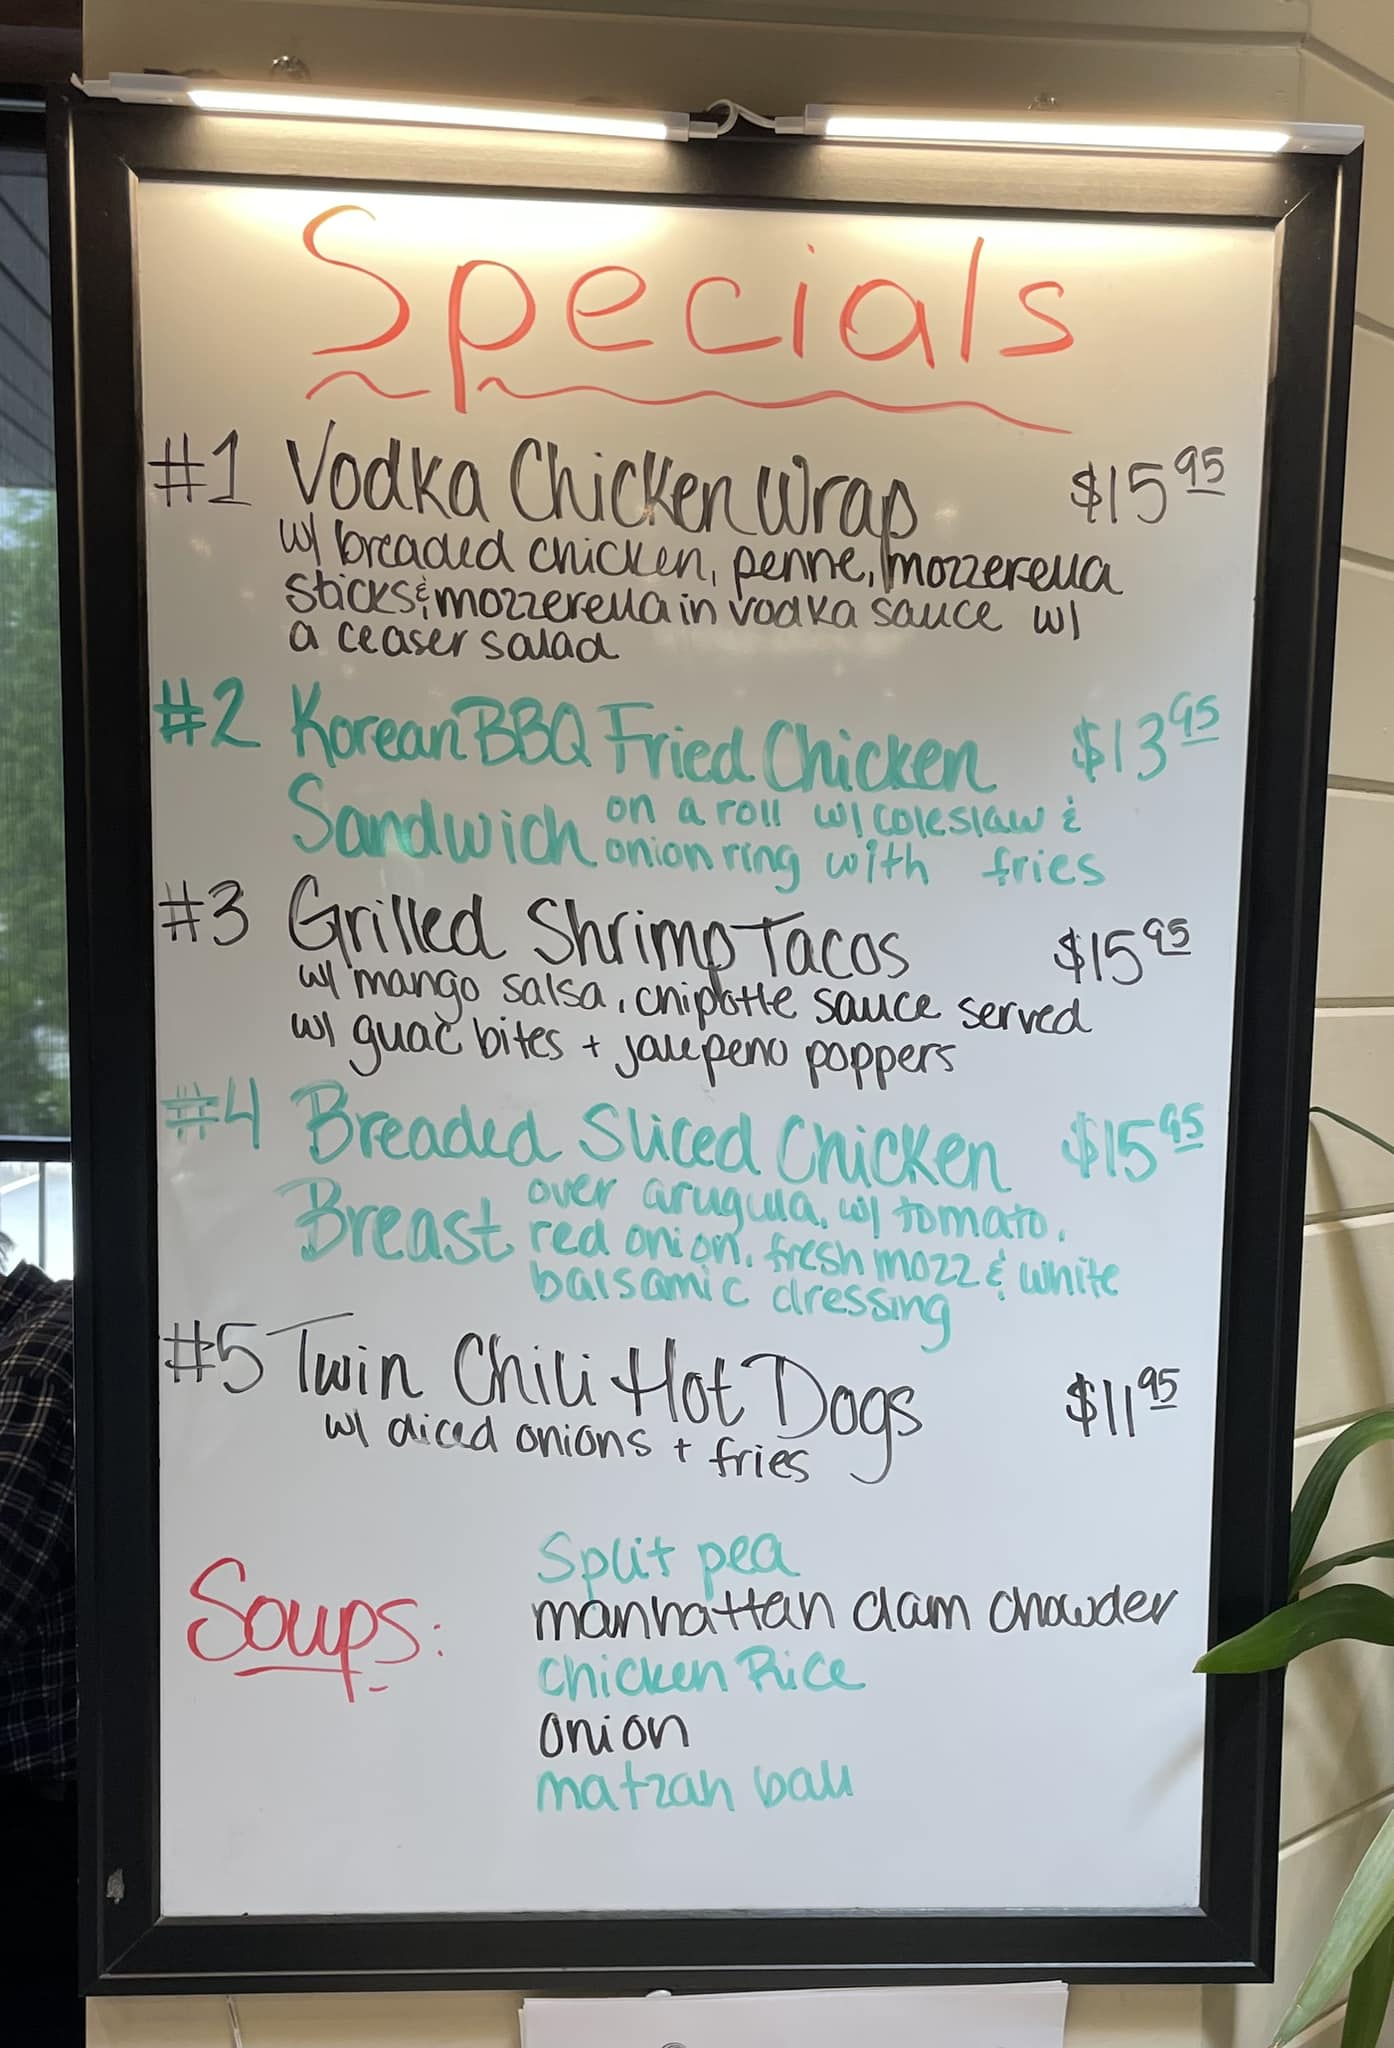 Specials
#1 Vodka Chicken Wrap $15.95
w/ breaded chicken, penne, mozzerella
sticks & mozzerella in vodka sauce w/
a ceaser salad
#2 Korean BBQ Fried Chicken $13.95
Sandwich on a roll w/ coleslaw &
onion ring with fries
#3 Grilled Shrimp Tacos $15.95
w/ mango salsa, chipotle sauce served
w/ guac bites + jalepeno poppers
#4 Breaded Sliced Chicken $15.95
Breast over arugula, w/ tomato,
red onion, fresh mozz & white
balsamic dressing
#5 Twin Chili Hot Dogs $11.95
w/ diced onions + fries
Soups: Split pea
manhattan clam chowder
Chicken Rice
onion
matzah ball